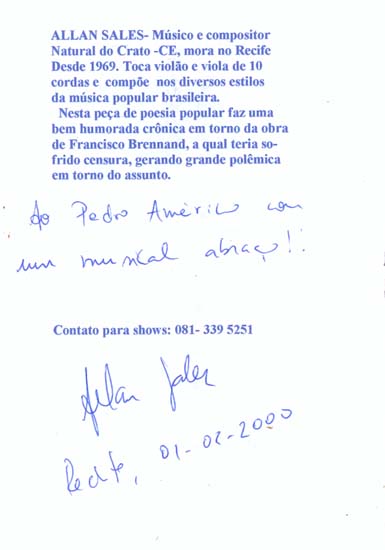 ALLAN SALES- Músico e compositor
Natural do Crato -CE, mora no Recife
Desde 1969. Toca violão e viola de 10
cordas e compõe nos diversos estilos
da música popular brasileira.
Nesta peça de poesia popular faz uma
bem humorada crônica em torno da obra
de Francisco Brennand, a qual teria so-
frido censura, gerando grande polêmica
em torno do assunto.
Ao Pedro Américo com
um musical abraço!!
Contato para shows: 081- 339 5251
Allan Sales
Recife, 01-02-2000